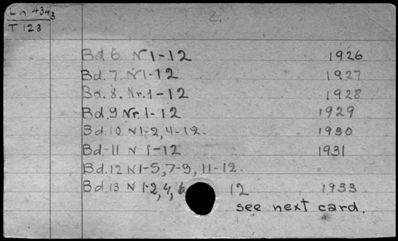 T 123
2.
Bd. 6. N 1-12 1926
Bd. 7. N 1-12 1927
Bd. 8. Nr. 1-12 1928
Bd. 9 Nr. 1-12 1929
Bd. 10. N 1-2, 4-12. 1930
Bd-11 N 1-12 1931
Bd. 12 N 1-5, 7-9, 11-12.
Bd. 13 N 1-2, 4, 6 12 1933
see next card.